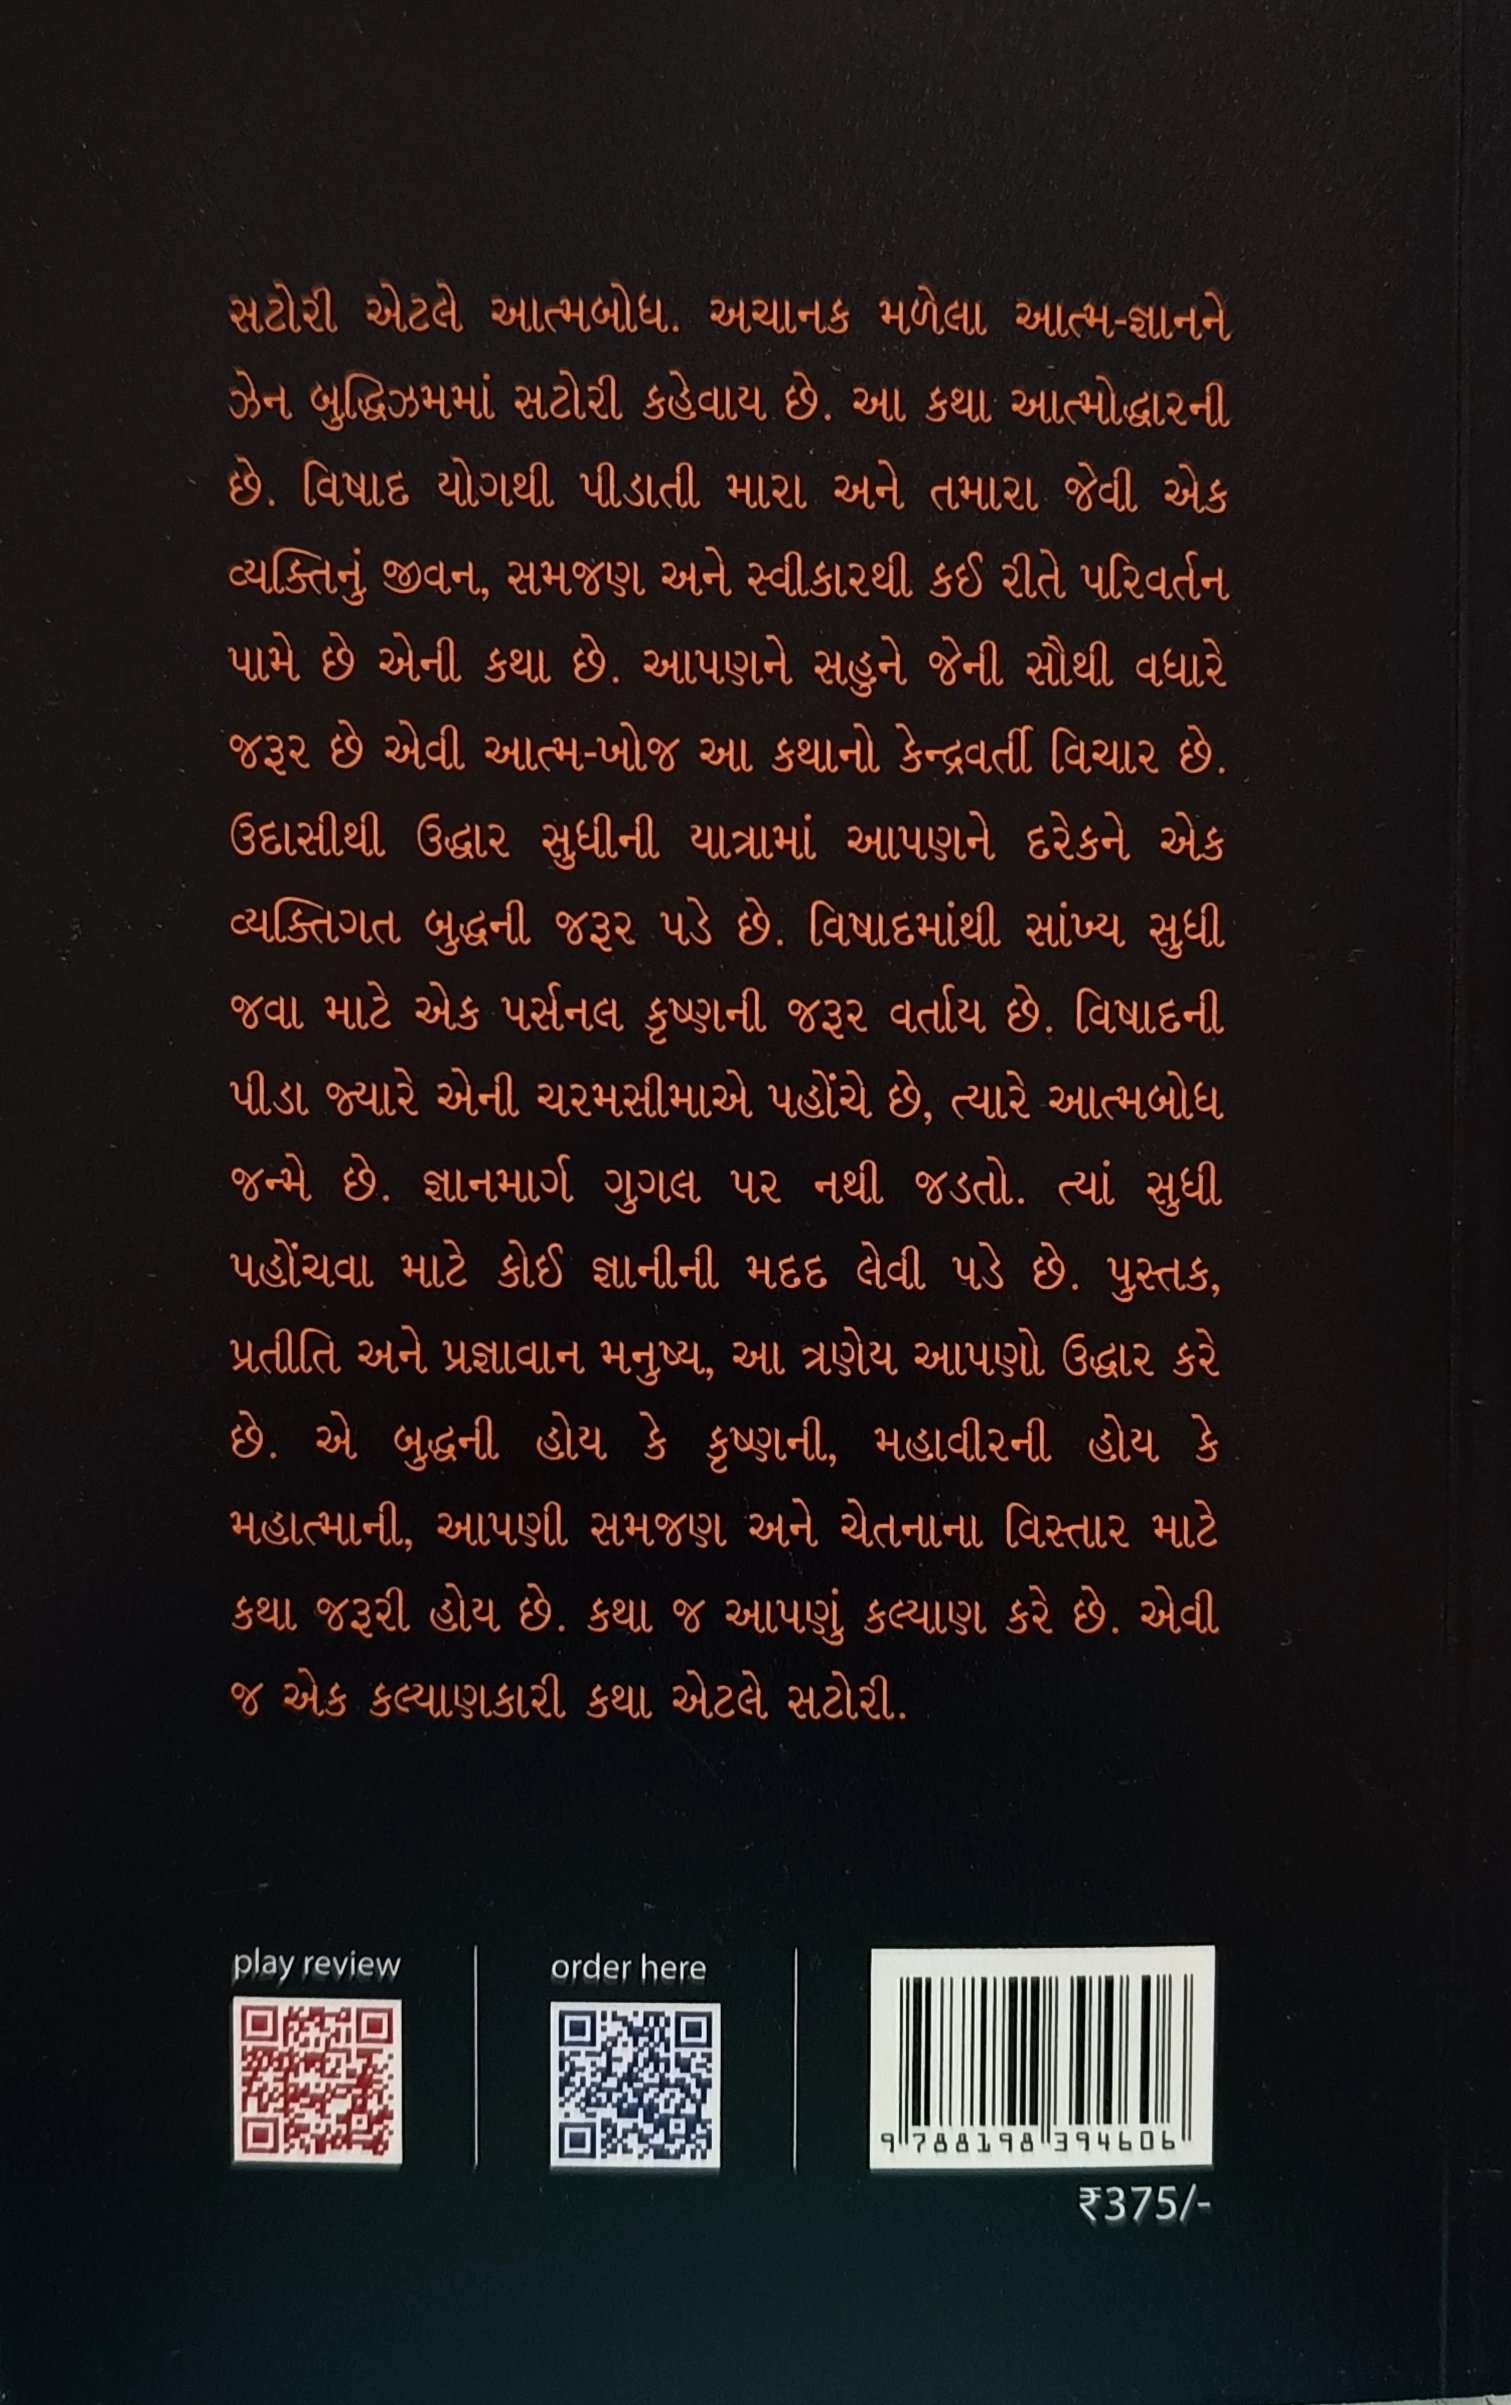 સટોરી એટલે આત્મબોધ. અચાનક મળેલા આત્મ-જ્ઞાનને
ઝેન બુદ્ધિઝમમાં સટોરી કહેવાય છે. આ કથા આત્મોદ્ધારની
છે. વિષાદ યોગથી પીડાતી મારા અને તમારા જેવી એક
વ્યક્તિનું જીવન, સમજણ અને સ્વીકારથી કઈ રીતે પરિવર્તન
પામે છે એની કથા છે. આપણને સહુને જેની સૌથી વધારે
જરૂર છે એવી આત્મ-ખોજ આ કથાનો કેન્દ્રવર્તી વિચાર છે.
ઉદાસીથી ઉદ્ધાર સુધીની યાત્રામાં આપણને દરેકને એક
વ્યક્તિગત બુદ્ધની જરૂર પડે છે. વિષાદમાંથી સાંખ્ય સુધી
જવા માટે એક પર્સનલ કૃષ્ણની જરૂર વર્તાય છે. વિષાદની
પીડા જ્યારે એની ચરમસીમાએ પહોંચે છે, ત્યારે આત્મબોધ
જન્મે છે. જ્ઞાનમાર્ગ ગુગલ પર નથી જડતો. ત્યાં સુધી
પહોંચવા માટે કોઈ જ્ઞાનીની મદદ લેવી પડે છે. પુસ્તક,
પ્રતીતિ અને પ્રજ્ઞાવાન મનુષ્ય, આ ત્રણેય આપણો ઉદ્ધાર કરે
છે. એ બુદ્ધની હોય કે કૃષ્ણની, મહાવીરની હોય કે
મહાત્માની, આપણી સમજણ અને ચેતનાના વિસ્તાર માટે
કથા જરૂરી હોય છે. કથા જ આપણું કલ્યાણ કરે છે. એવી
જ એક કલ્યાણકારી કથા એટલે સટોરી.
play review
order here
9 788198 394606
₹375/-